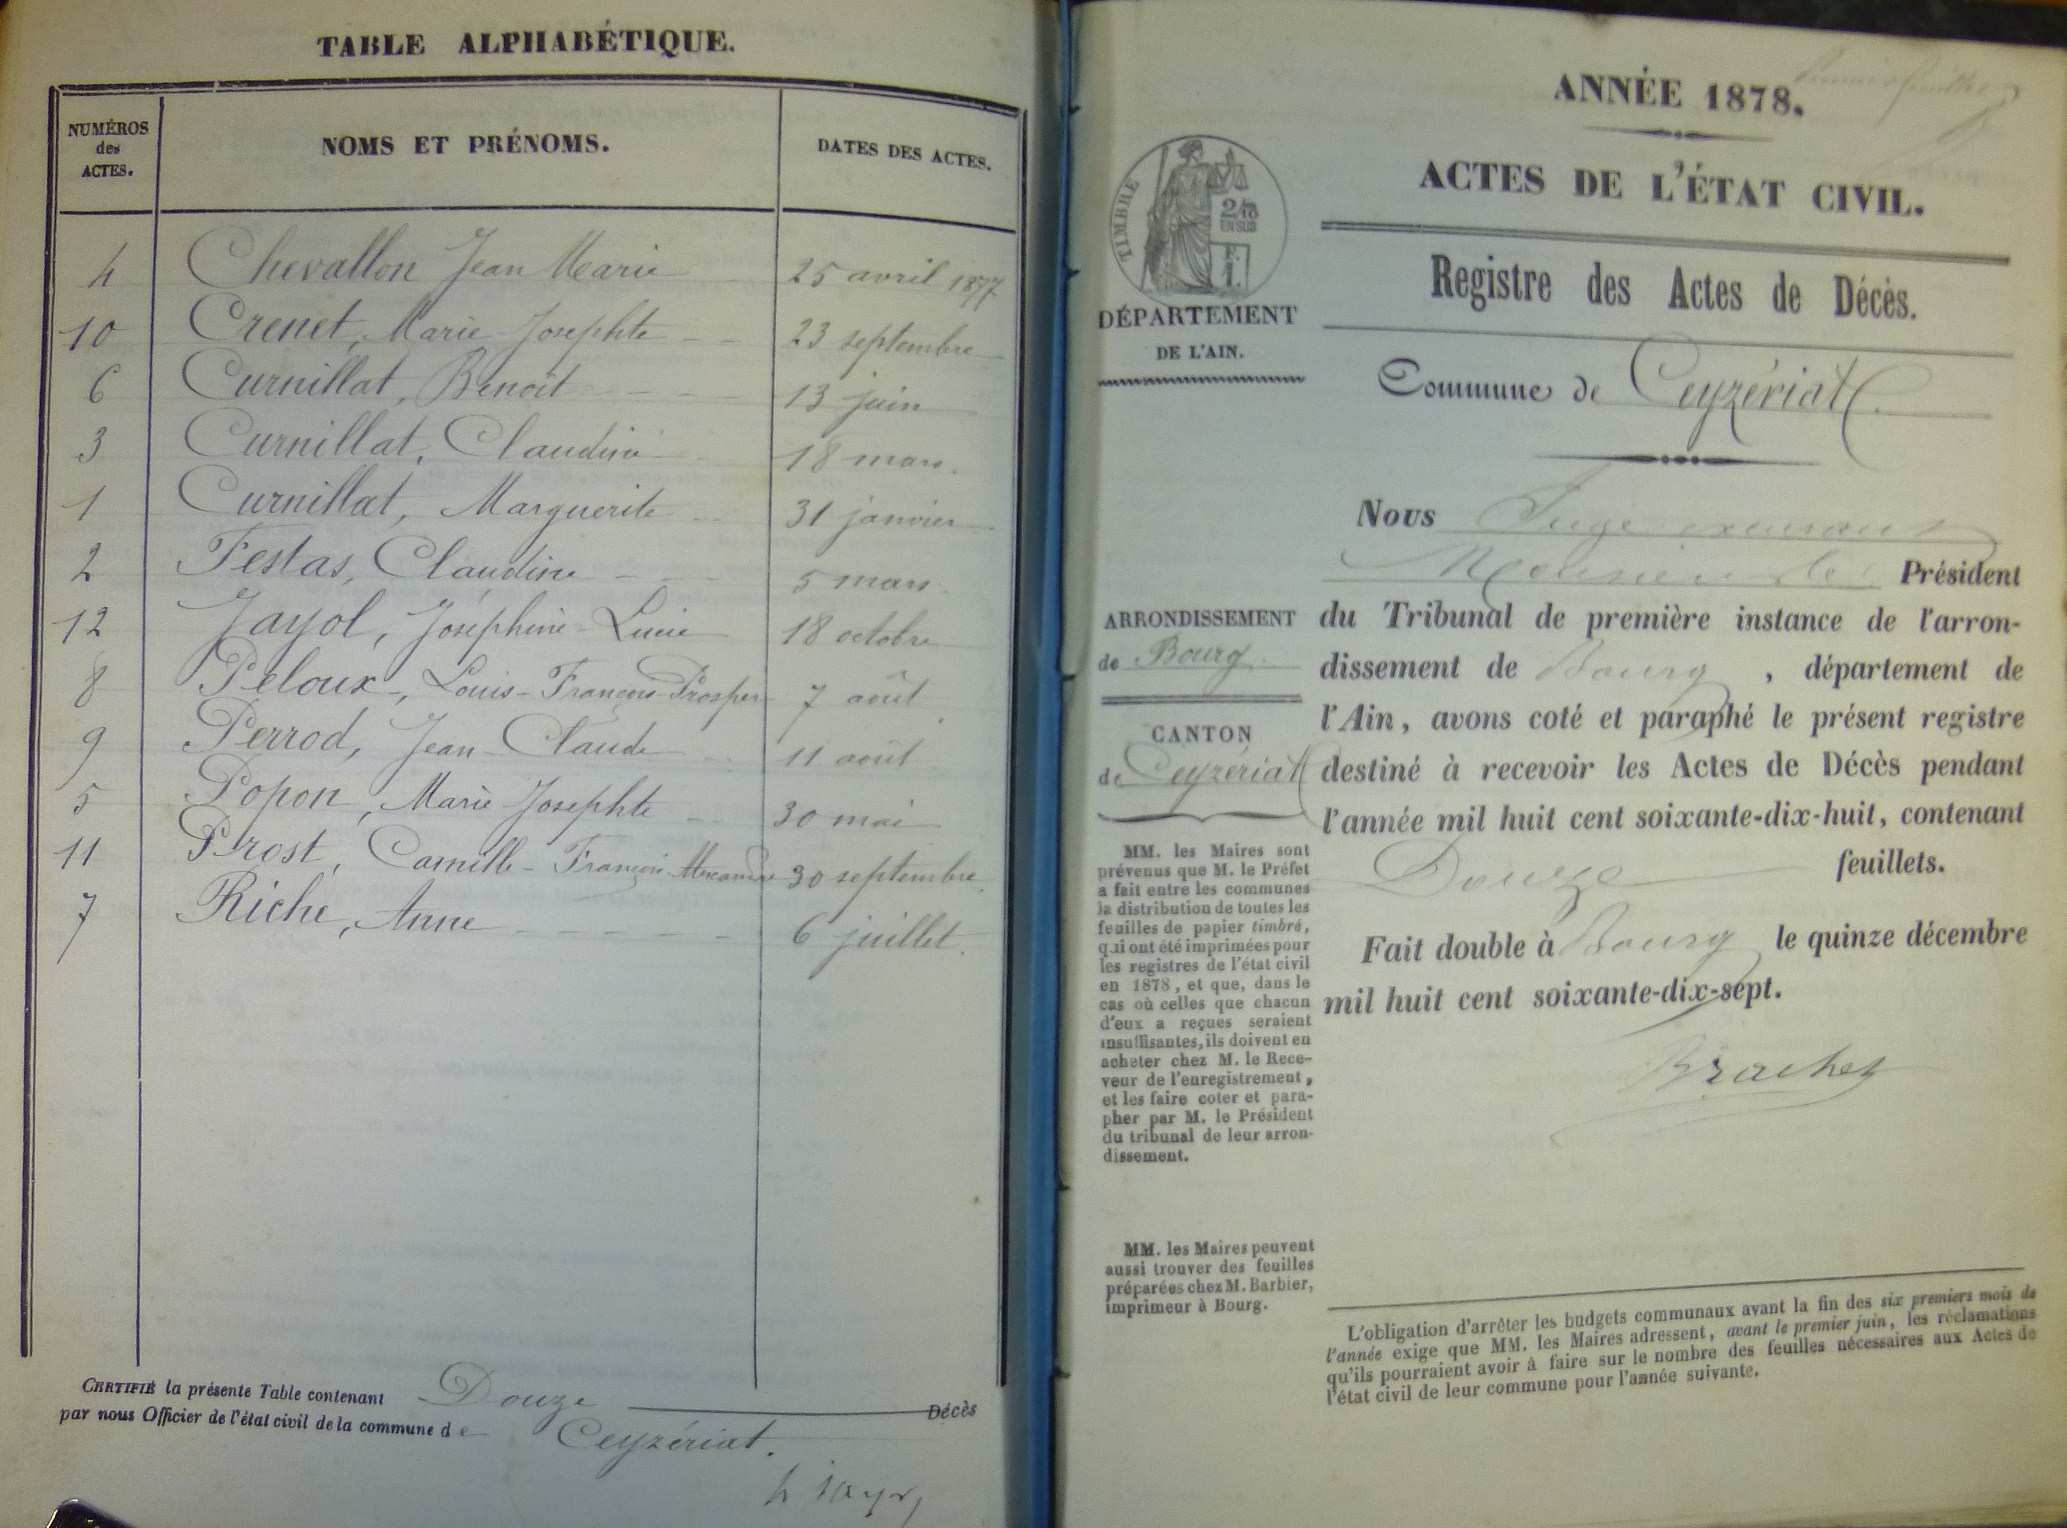 TABLE ALPHABÉTIQUE.
NUMÉROS des ACTES.
NOMS ET PRÉNOMS.
DATES DES ACTES.
4 Chevallon Jean Marie 25 avril 1877
10 Crenet, Marie Josephte 23 septembre
6 Curnillat, Benoît 13 juin
3 Curnillat, Claudine 18 mars.
1 Curnillat, Marguerite 31 janvier
2 Festas, Claudine 5 mars.
12 Jayol, Joséphine-Lucie 18 octobre
8 Peloux, Louis-François-Prosper 7 août
9 Perrod, Jean-Claude 11 août
5 Popon, Marie Josephte 30 mai
11 Prost, Camille-François 30 septembre.
7 Riche, Anne 6 juillet.
CERTIFIÉ la présente Table contenant Douze Décès
par nous Officier de l'état civil de la commune de Ceyzériat.
ANNÉE 1878.
ACTES DE L'ÉTAT CIVIL.
TIMBRE
2/10
EN SUS
Registre des Actes de Décès.
DÉPARTEMENT
DE L'AIN.
Commune de Ceyzériat.
Nous Juge
Président
du Tribunal de première instance de l'arron-
dissement de Bourg, département de
l'Ain, avons coté et paraphé le présent registre
destiné à recevoir les Actes de Décès pendant
l'année mil huit cent soixante-dix-huit, contenant
Douze feuillets.
Fait double à Bourg le quinze décembre
mil huit cent soixante-dix-sept.
ARRONDISSEMENT
de Bourg.
CANTON
de Ceyzériat
MM. les Maires sont
prévenus que M. le Préfet
a fait entre les communes
la distribution de toutes les
feuilles de papier timbré,
qui ont été imprimées pour
les registres de l'état civil
en 1878, et que, dans le
cas où celles que chacun
d'eux a reçues seraient
insuffisantes, ils doivent en
acheter chez M. le Rece-
veur de l'enregistrement,
et les faire coter et para-
pher par M. le Président
du tribunal de leur arron-
dissement.
MM. les Maires peuvent
aussi trouver des feuilles
préparées chez M. Barbier,
imprimeur à Bourg.
L'obligation d'arrêter les budgets communaux avant la fin des six premiers mois de
l'année exige que MM. les Maires adressent, avant le premier juin, les réclamations
qu'ils pourraient avoir à faire sur le nombre des feuilles nécessaires aux Actes de
l'état civil de leur commune pour l'année suivante.